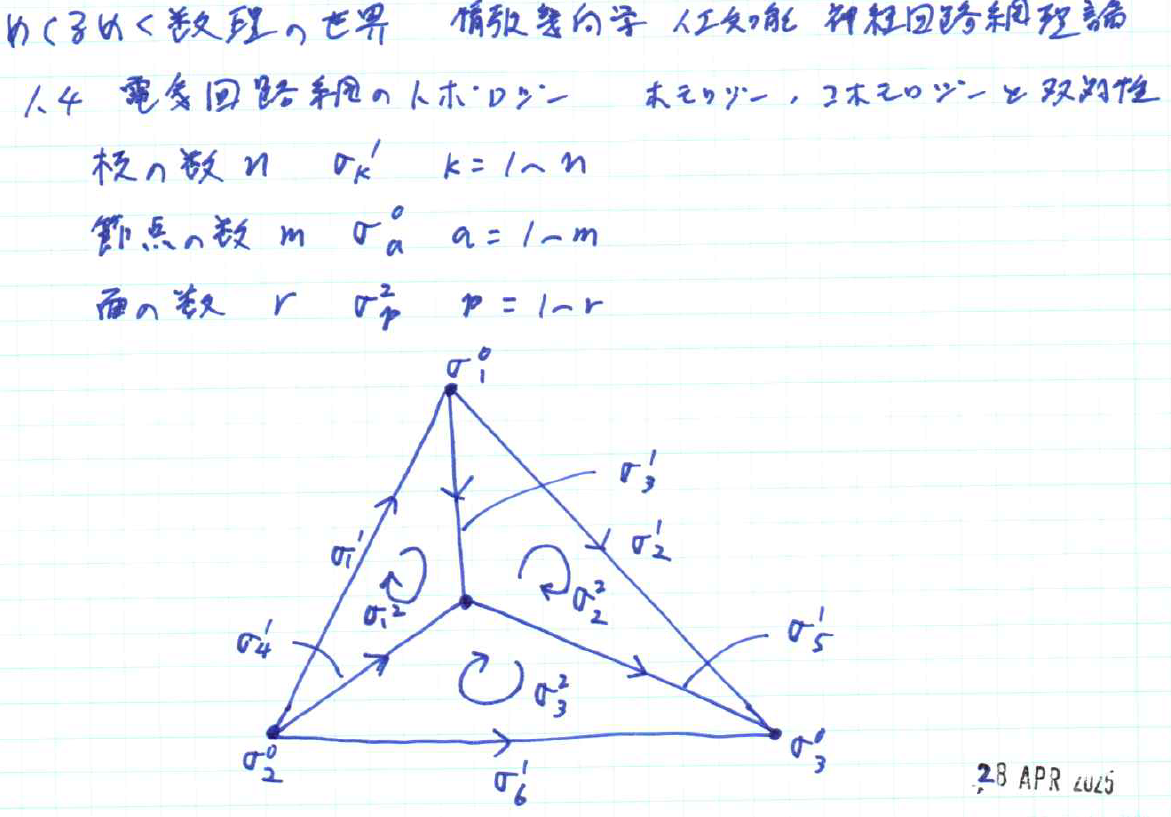 めくるめく数理の世界 情報幾何学 人工知能 神経回路網理論
1.4 電気回路網のトポロジー ホモロジー、コホモロジーと双対性
枝の数 n σ¹ₖ k = 1~n
節点の数 m σ⁰ₐ a = 1~m
面の数 r σ²ₚ p = 1~r
σ⁰₁
σ¹₃
σ¹₁
σ¹₂
σ²₁
σ²₂
σ¹₄
σ¹₅
σ²₃
σ⁰₂
σ⁰₃
σ¹₆
28 APR 2025